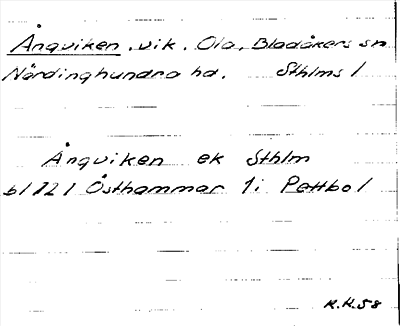 Ångviken, vik, Ola, Bladåkers sn
Närdinghundra hd. Sthlms l
Ångviken ek Sthlm
bl 121 Östhammar 1i Pettbol
K.H.58